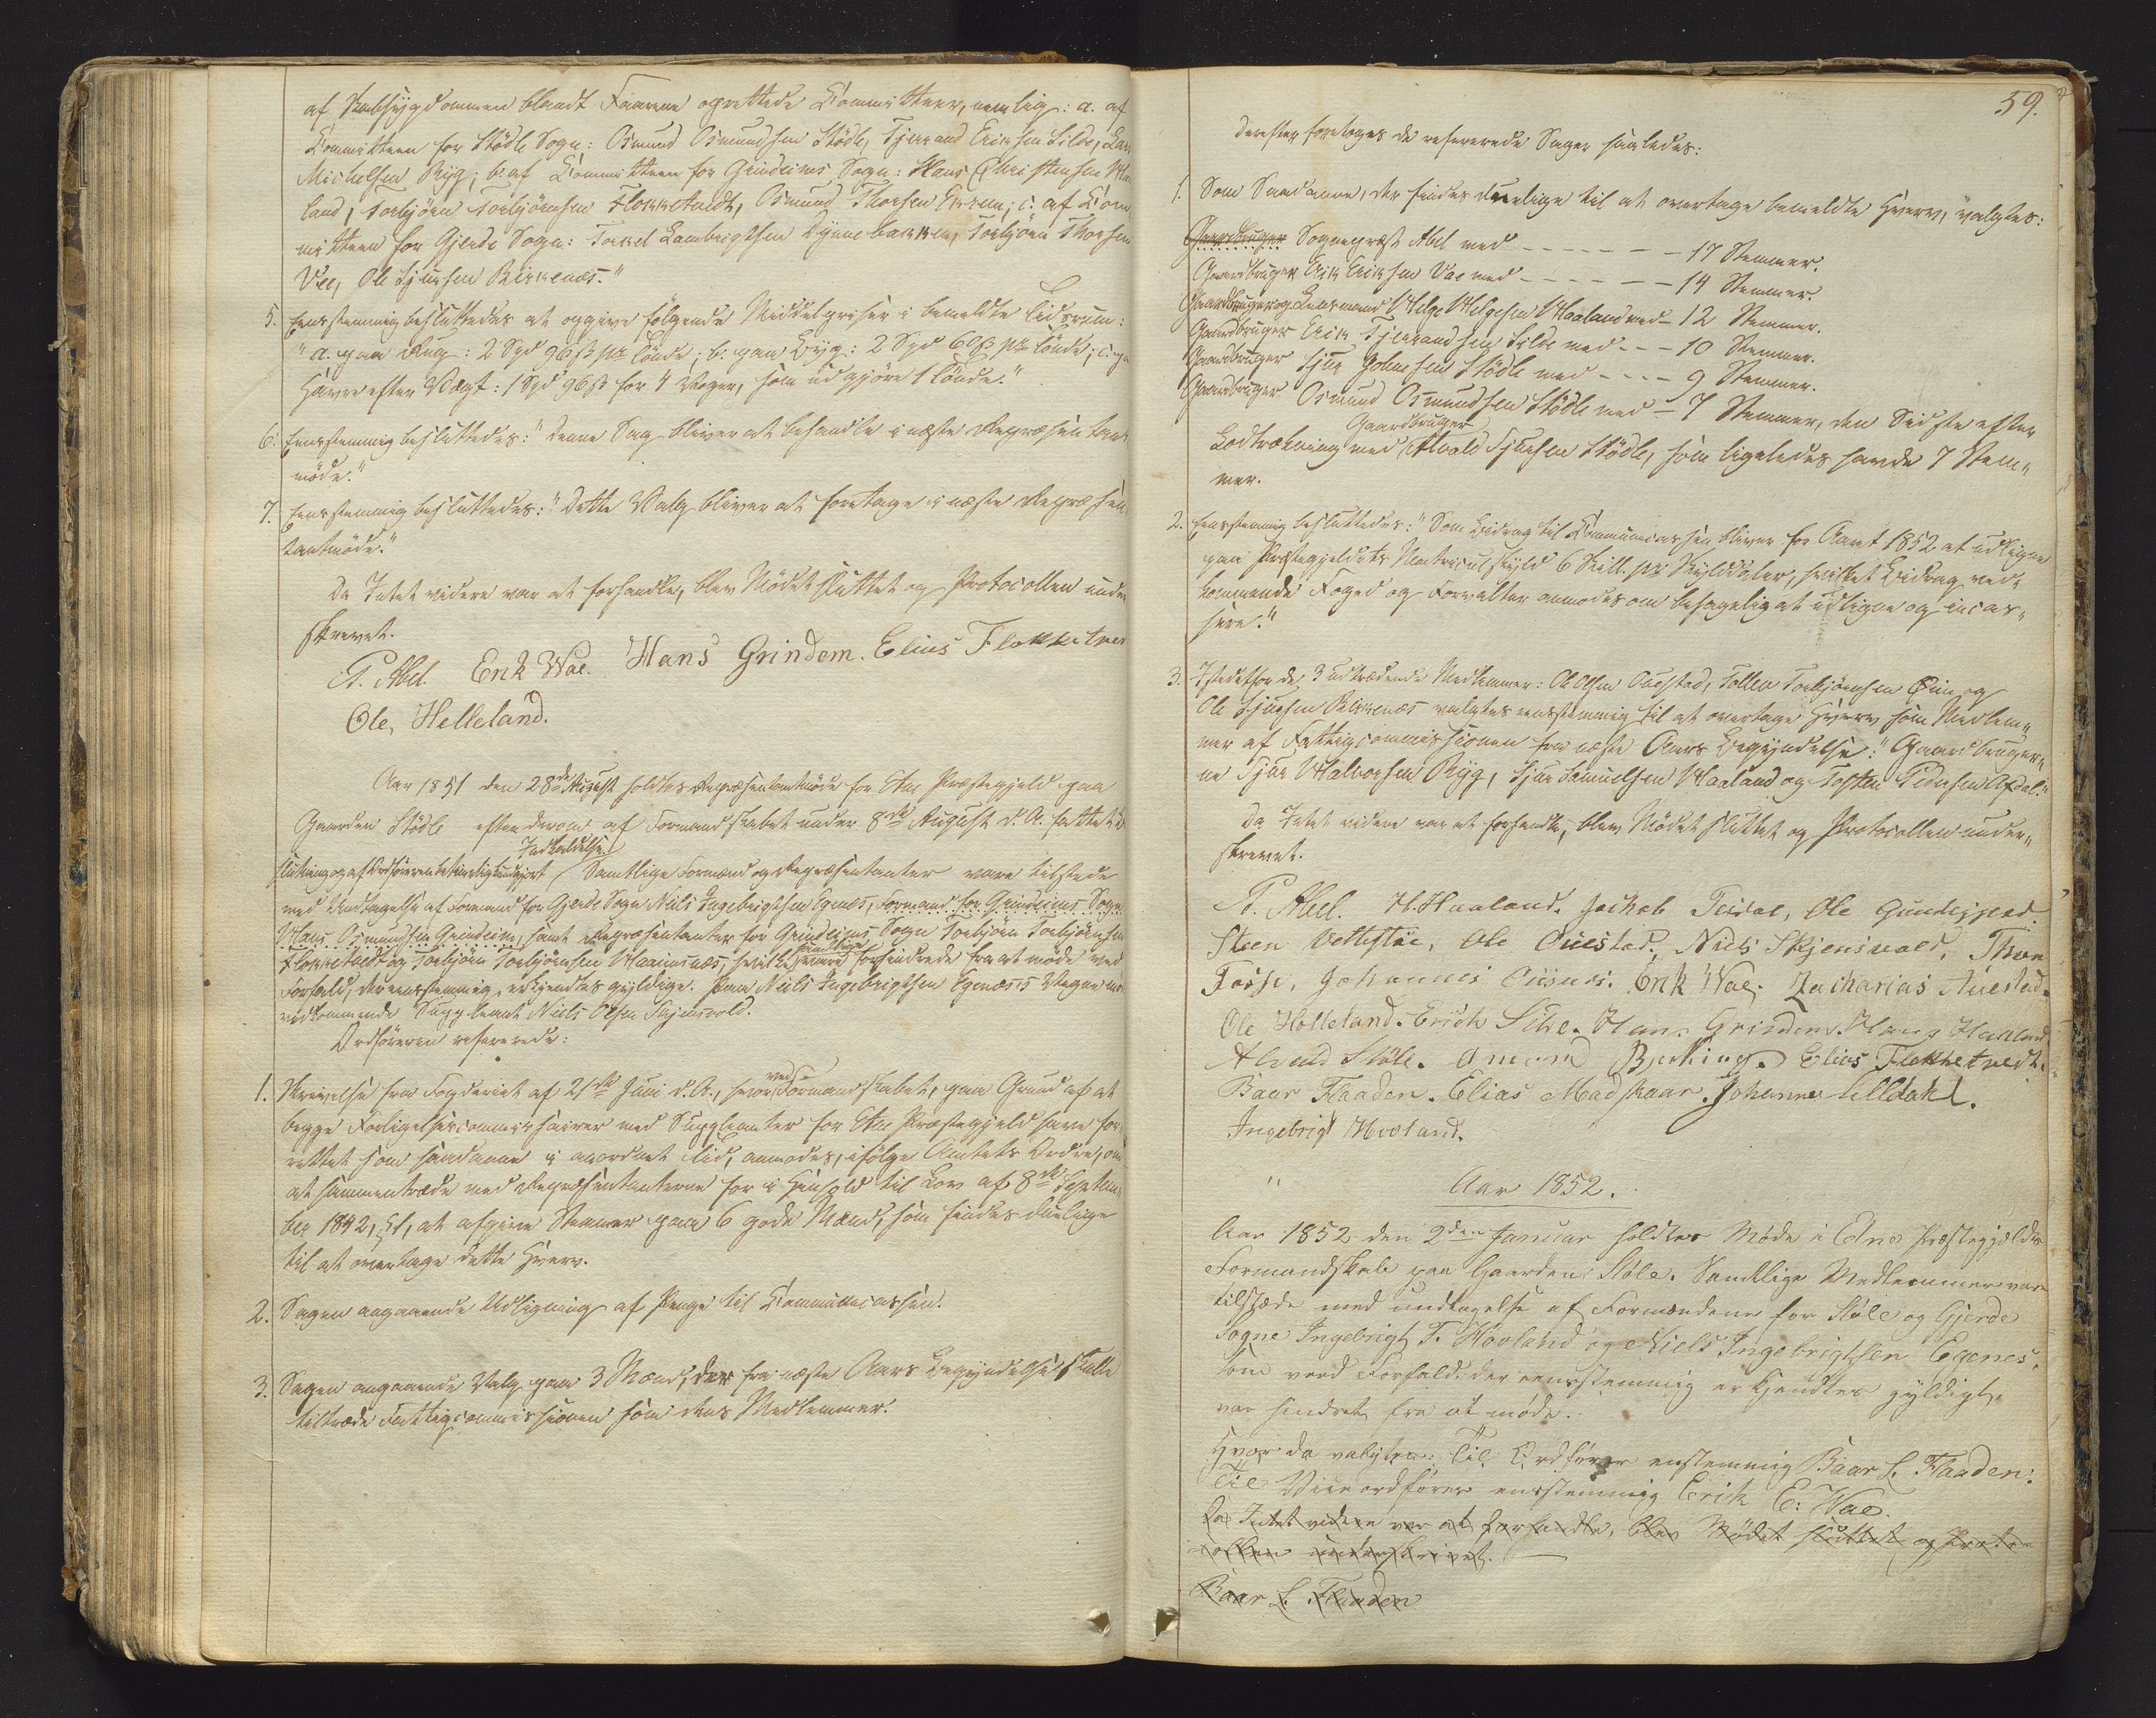 af Skabsygdommen blandt Faarene oprettede Committeer, nemlig: a. af
Committeen for Stödle Sogn: Osmund Osmundsen Stödle, Tjerand Eriksen Silde, Lars
Michelsen Ryg; b. af Committeen for Grindeims Sogn: Hans Christensen Haa
land, Torbjörn Torbjörnsen Flokketvedt, Osmund Thorsen; c. af Com
mitteen for Gjerde Sogn: Torkel Lambrigtsen, Torbjörn Thorsen
Vee, Ole Sjursen Birkenæs."
5. Eensstemmig besluttedes at opgive følgende Middelpriser i bemeldte Tidsrum:
"a. paa Rug: 2 Spd 96 ß pr Tönde; b. paa Byg: 2 Spd 60 ß pr Tönde; c. paa
Havre efter Vægt: 1 Spd 96 ß for 4 Voger, som udgjöre 1 Tönde."
6. Eensstemmig besluttedes: "Denne Sag bliver at behandle i næste Repræsentant
möde."
7. Eensstemmig besluttedes: "Dette Valg bliver at foretage i næste Repræsen
tantmöde."
Da Intet videre var at forhandle, blev Mödet sluttet og Protocollen under
skrevet.
P. Abel. Erik Wae. Hans Grindem. Elius Flokketvet
Ole, Helleland.
Aar 1851 den 28de August holdtes Repræsentantmöde for Etne Præstegjeld paa
Gaarden Stödle efter derom af Formandskabet under 8de August d. A. fattet Be
slutning og af Ordföreren betimelig kundgjort Indkaldelse. Samtlige Formænd og Repræsentanter vare tilstede
med Undtagelse af Formand for Gjerde Sogn Niels Ingebrigtsen Egenæs, Formand for Grindeims Sogn
Hans Osmundsen Grindeim, samt Repræsentanter for Grindeims Sogn Torbjörn Torbjörnsen
Flokketvedt og Torbjörn Torbjörnsen Haaeimsnæs, hvilke samtlige vare forhindrede fra at möde ved
Forfald, der eensstemmig erkjendtes gyldige. Paa Niels Ingebrigtsen Egenæs's Vegne mö
vedkommende Suppleant Niels Olsen Skjensvold.
Ordföreren refererede:
1. Skrivelse fra Fogderiet af 21de Juni d. A., hvorved Formandskabet, paa Grund af at
begge Forligelsescommissairer med Suppleanter for Etne Præstegjeld have for
rettet som saadanne i anordnet Tid, anmodes, ifölge Amtets Ordre, om
at sammentræde med Repræsentanterne for i Henhold til Lov af 8de Septem
ber 1842, § 1, at afgive Stemmer paa 6 gode Mænd, som findes duelige
til at overtage dette Hverv.
2. Sagen angaaende Udligning af Penge til Communecassen.
3. Sagen angaaende Valg paa 3 Mænd, der fra næste Aars Begyndelse skulle
tiltræde Fattigcommissionen som dens Medlemmer.
59.
Derefter foretoges de refererede Sager saaledes:
1. Som Saadanne, der findes duelige til at overtage bemeldte Hverv, valgtes:
Gaardbruger Sognepræst Abel med - - - - - - 17 Stemmer.
Gaardbruger Erik Eriksen Vae med - - - - - - 14 Stemmer.
Gaardbruger og Lensmand Helge Helgesen Haaland med - 12 Stemmer.
Gaardbruger Erik Tjerandsen Silde med - - - 10 Stemmer.
Gaardbruger Sjur Johnsen Stödle med - - - - 9 Stemmer.
Gaardbruger Osmund Osmundsen Stödle med - 7 Stemmer, den Sidste efter
Lodtrækning med Gaardbruger Alvald Sjursen Stödle, som ligeledes havde 7 Stem„
mer.
2. Eensstemmig besluttedes: "Som Bidrag til Communecassen bliver for Aaret 1852 at udligne
paa Præstegjeldets Matriculskyld 6 Skill. pr Skylddaler, hvilket Bidrag ved„
kommende Foged og Forvalter anmodes om behageligt at udligne og incas„
sere."
3. Istedetfor de 3 udtrædende Medlemmer: Ole Olsen Austad, Tollev Torbjörnsen Öen og
Ole Sjursen Birkenæs valgtes eensstemmig til at overtage Hverv som Medlem„
mer af Fattigcommissionen fra næste Aars Begyndelse: "Gaardbruger„
ne Sjur Halvorsen Ryg, Sjur Samuelsen Haaland og Tosten Pedersen Axdal."
Da Intet videre var at forhandle, blev Mödet sluttet og Protocollen under„
skrevet.
P. Abel. H. Haaland. Jackob Teidal, Ole Gundegjerd.
Steen Vettestöe, Ole Öuestad, Niels Skjensvold, Thore
Fosse, Johannes. Erik Wae. Zacharias Auestad.
Ole Helleland. Erich Silde. Hans Grindem. Hans Haaland
Alvald Støle. Amund Bjerking. Elias Flokketvedt.
Baar Flaaden. Elias Madskaar. Johannes Lilledahl.
Ingebrigt Hovland.
" Aar 1852.
Aar 1852 den 2den Januar holdtes Møde i Etne Præstegjelds
Formandskab paa Gaarden Støle. Samtlige Medlemmer var
tilstæde med undtagelse af Formændene for Støle og Gjerde
Sogne Ingebrigt T. Hovland og Niels Ingebrigtsen Egenes,
som ved Forfald, der eensstemmig erkjendtes gyldigt,
var hindret fra at møde.
Hvor da valgtes: Til Ordfører enstemmig Baar L. Flaaden.
Til Viceordfører ensstemmig Erik E: Wae.
Da Intet videre var at forhandle, blev Mødet sluttet og Proto-
collen underskrivet.
Baar L. Flaaden